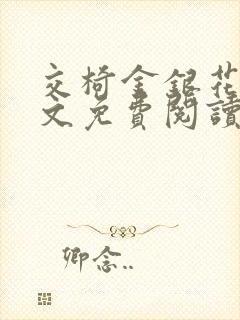 交椅金銀花
文免費閱讀
卿念..